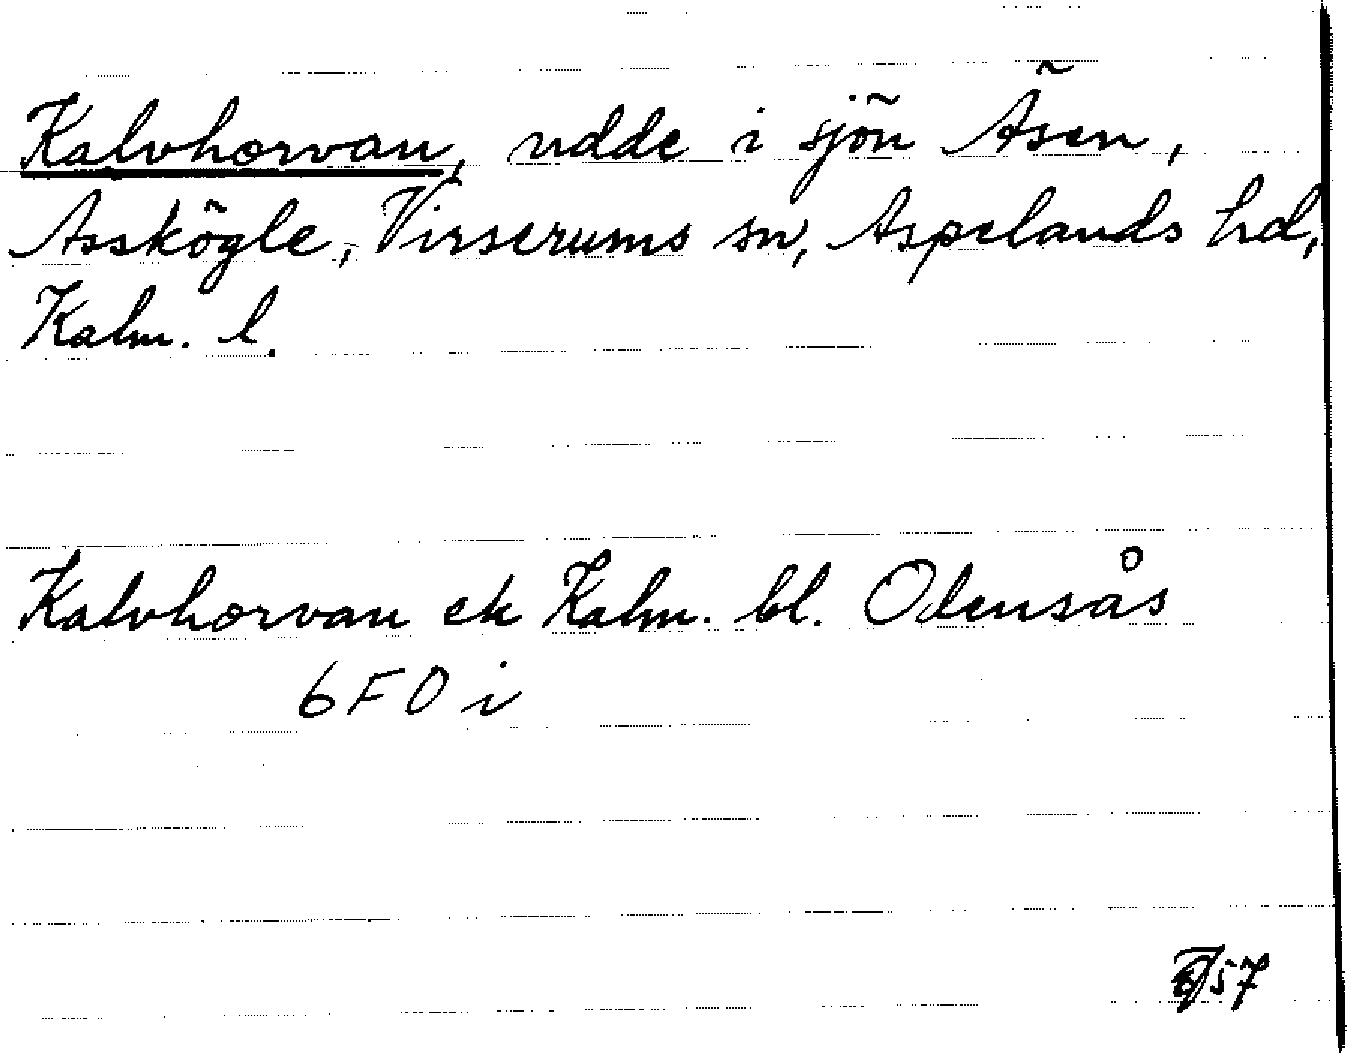 Kalvhorvan, udde i sjön Äsen,
Asskögle, Virserums sn, Aspelands hd,
Kalm. l.
Kalvhorvan ek Kalm. bl. Odensås
6F0i
57